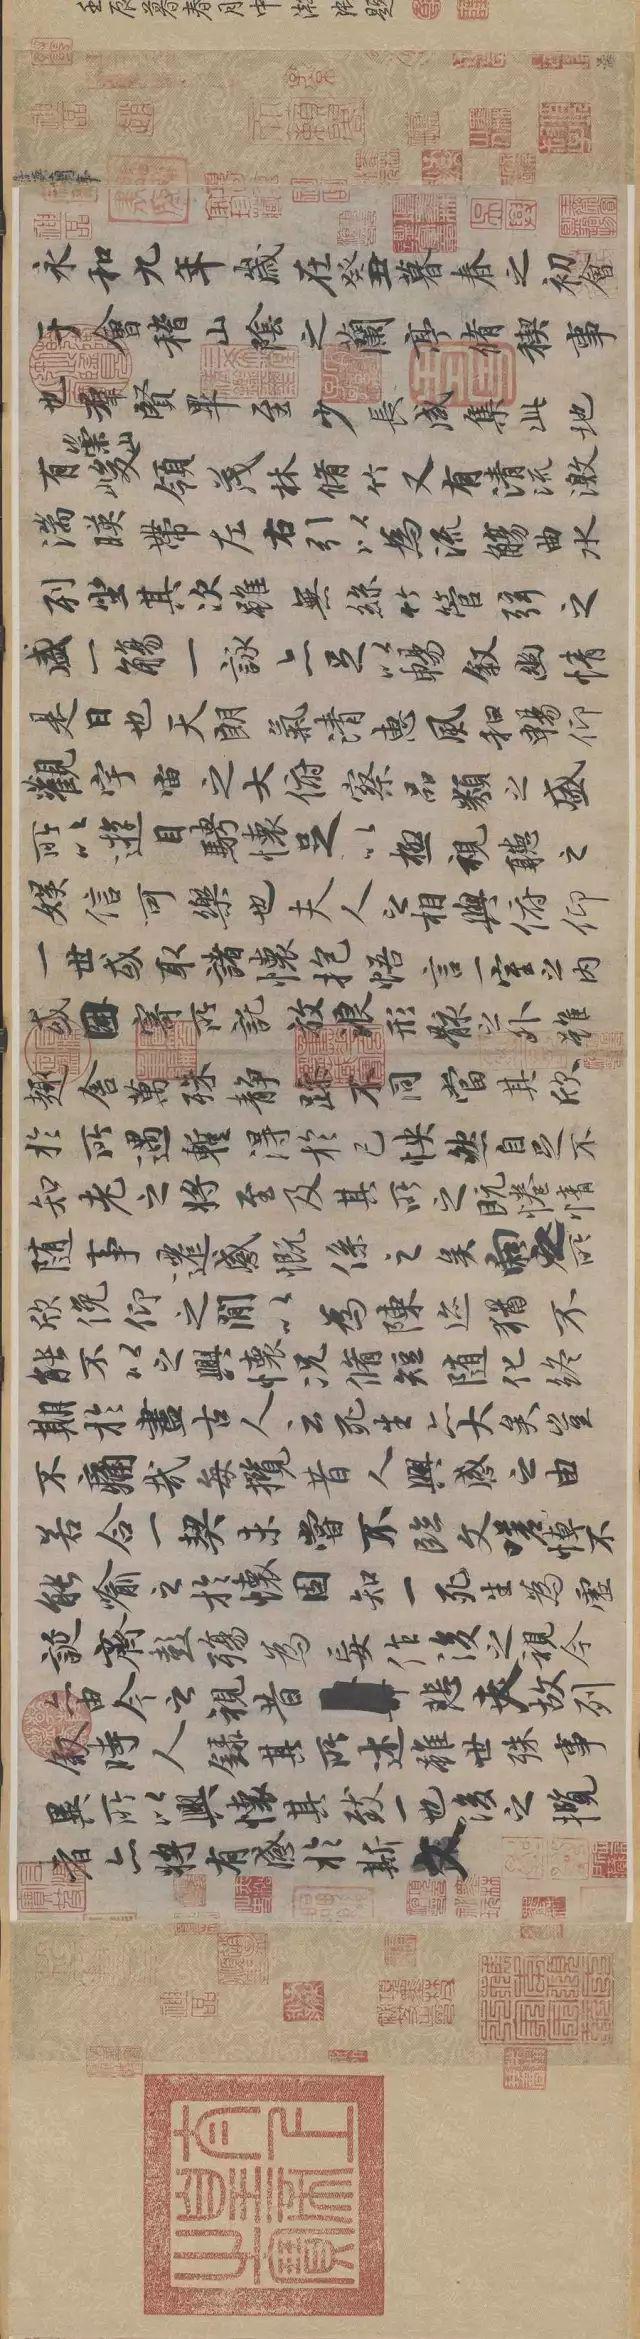 壬辰暮春月中澣題
永和九年歲在癸丑暮春之初會
于會稽山陰之蘭亭脩稧事
也群賢畢至少長咸集此地
有崇山峻領茂林脩竹又有清流激
湍暎帶左右引以為流觴曲水
列坐其次雖無絲竹管弦之
盛一觴一詠亦足以暢敘幽情
是日也天朗氣清惠風和暢仰
觀宇宙之大俯察品類之盛
所以遊目騁懷足以極視聽之
娛信可樂也夫人之相與俯仰
一世或取諸懷抱悟言一室之內
或因寄所託放浪形骸之外雖
趣舍萬殊靜躁不同當其欣
於所遇暫得於己怏然自足不
知老之將至及其所之既惓情
隨事遷感慨係之矣向之所
欣俛仰之閒以為陳迹猶不
能不以之興懷況脩短隨化終
期於盡古人云死生亦大矣豈
不痛哉每攬昔人興感之由
若合一契未嘗不臨文嗟悼不
能喻之於懷固知一死生為虛
誕齊彭殤為妄作後之視今
亦由今之視昔悲夫故列
敘時人錄其所述雖世殊事
異所以興懷其致一也後之攬
者亦將有感於斯文
太上皇帝之寶